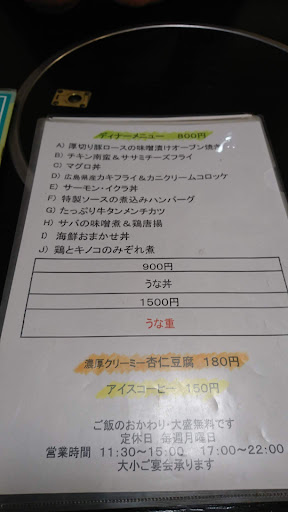 ディナーメニュー　800円
A) 厚切り豚ロースの味噌漬けオーブン焼
B) チキン南蛮＆ササミチーズフライ
C) マグロ丼
D) 広島県産カキフライ＆カニクリームコロッケ
E) サーモン・イクラ丼
F) 特製ソースの煮込みハンバーグ
G) たっぷり牛タンメンチカツ
H) サバの味噌煮＆鶏唐揚
I) 海鮮おまかせ丼
J) 鶏とキノコのみぞれ煮
900円
うな丼
1500円
うな重
濃厚クリーミー杏仁豆腐 180円
アイスコーヒー 150円
ご飯のおかわり・大盛無料です
定休日 毎週月曜日
営業時間 11:30～15:00 17:00～22:00
大小ご宴会承ります